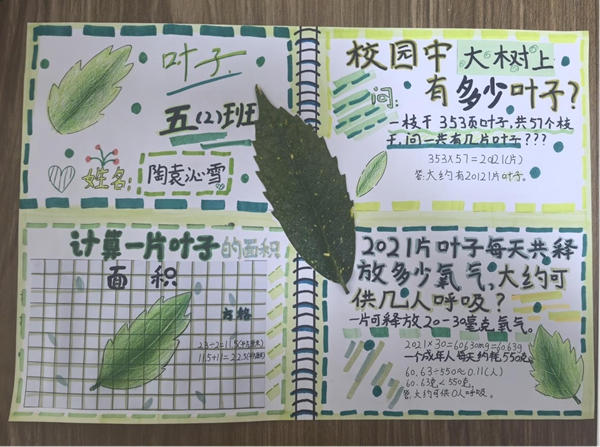 叶子
五(2)班
姓名:
陶袁沁雪
校园中大树上
有多少叶子?
问:
一枝干353页叶子,共57个枝
干,问一共有几片叶子???
353X57=2021(片)
答:大约有20121片叶子。
计算一片叶子的面积
面积
方格
23÷2=11.5(平方厘米)
11.5+11=22.5(平方厘米)
2021片叶子每天共释
放多少氧气,大约可
供几人呼吸?
一片可释放20-30毫克氧气。
2021×30=60630mg=60.63g
一个成年人每天约耗550克。
60.63÷550≈0.11(人)
60.63克<550克,
答:大约可供0人呼吸。